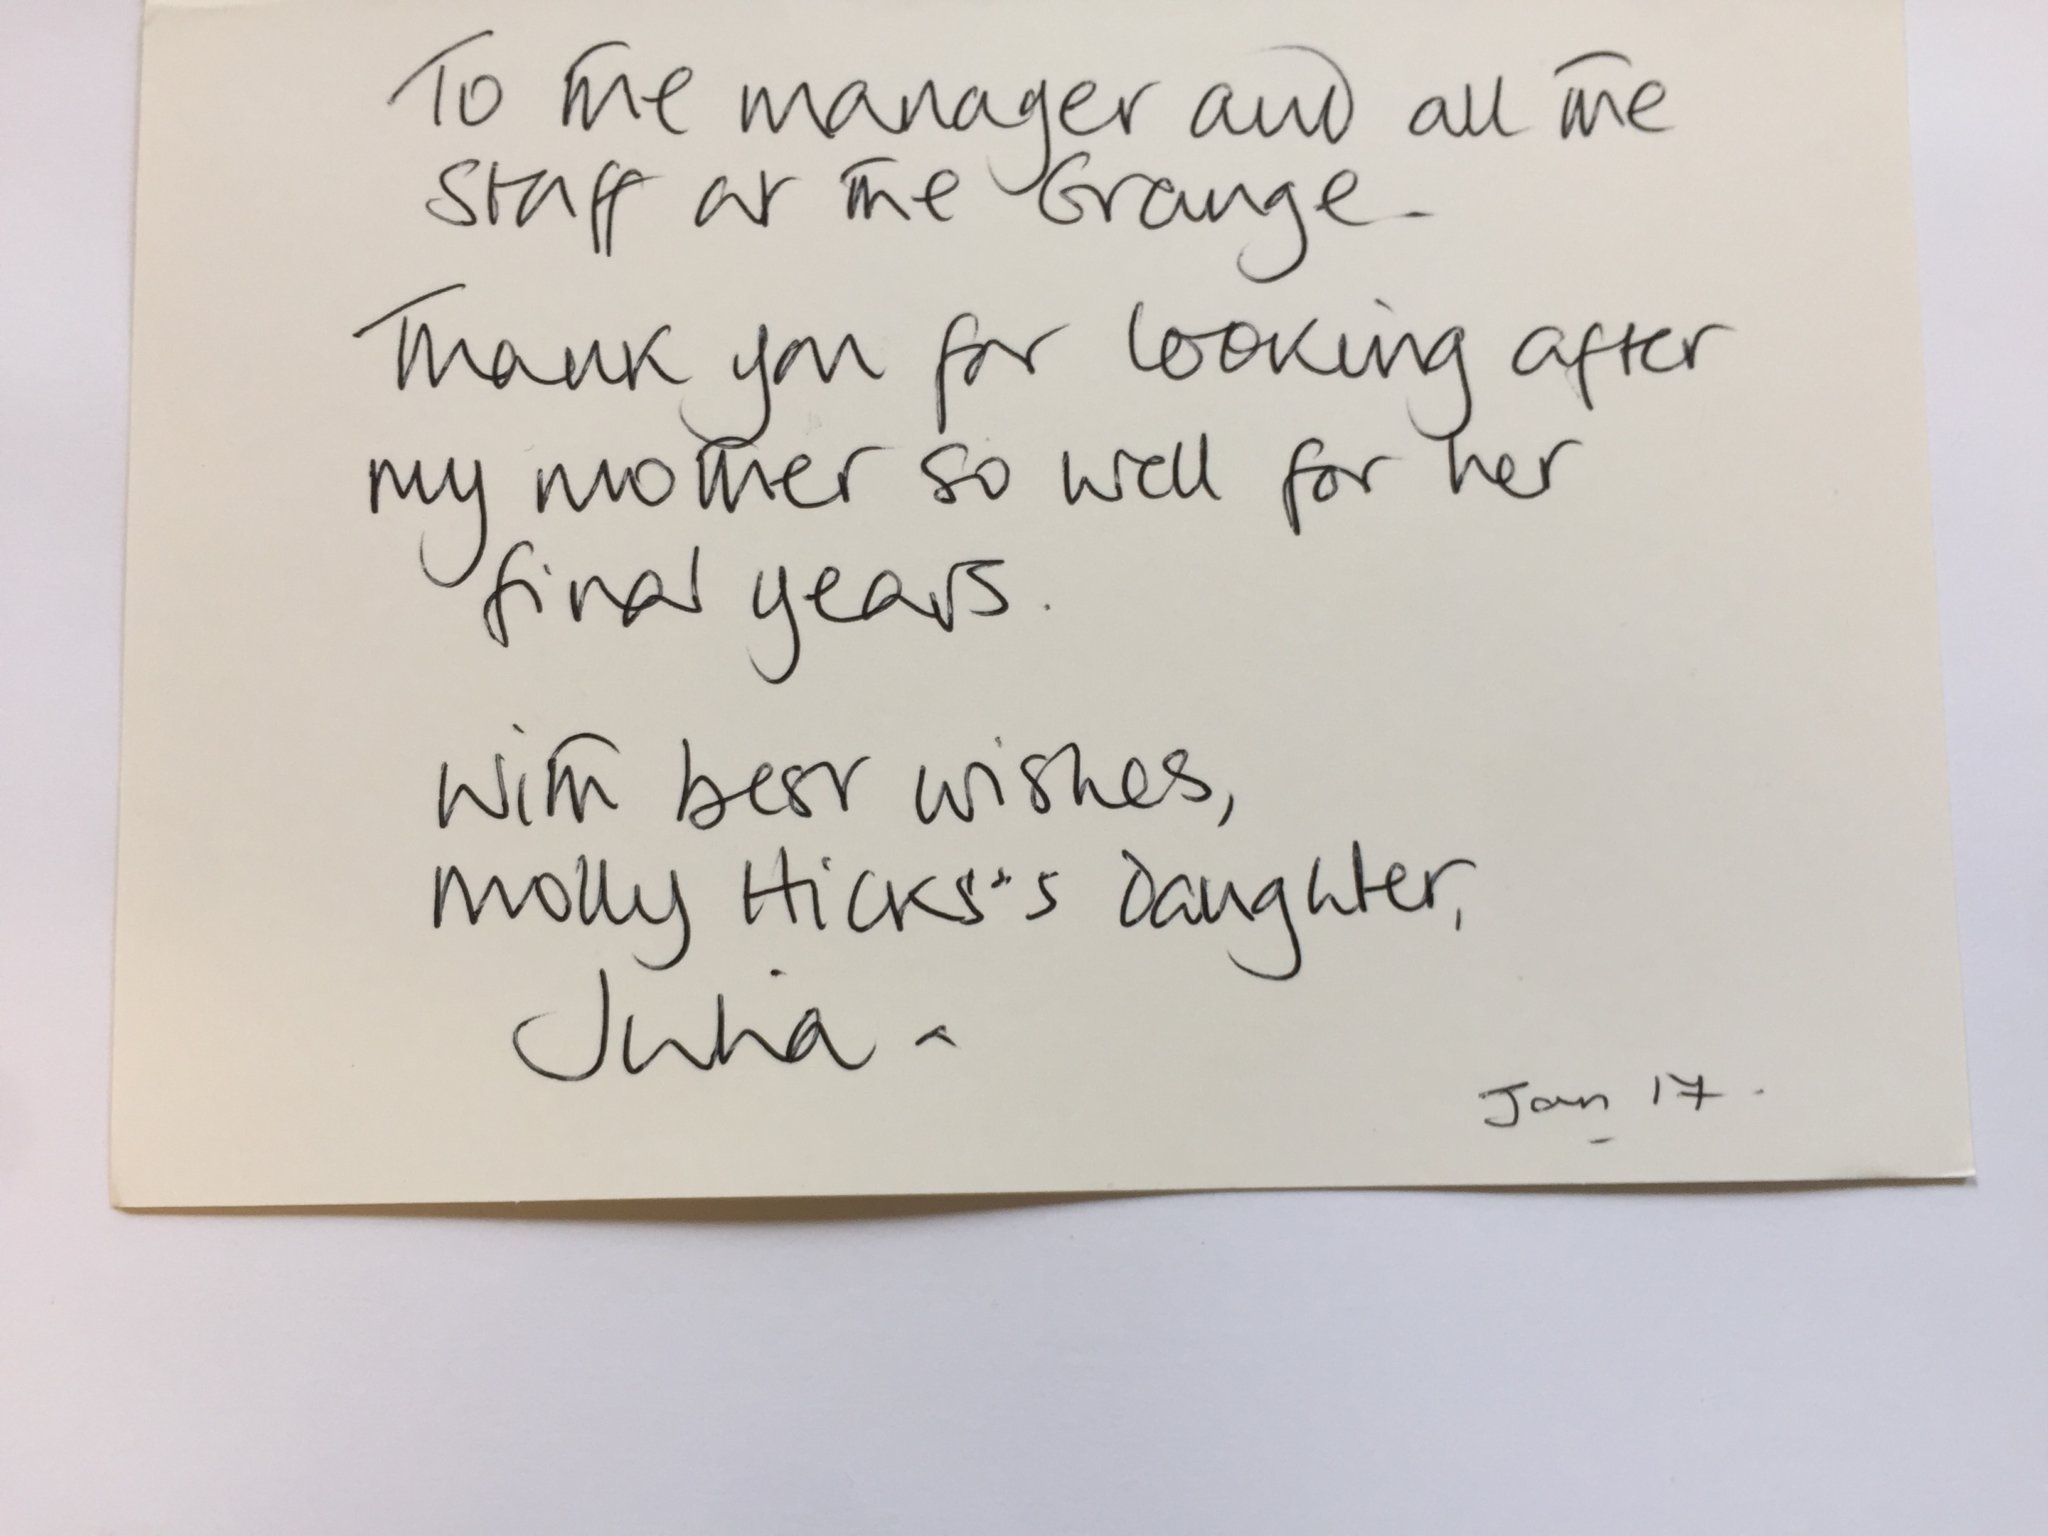 To the manager and all the
staff at the Grange.
Thank you for looking after
my mother so well for her
final years.
With best wishes,
Molly Hicks's Daughter,
Julia
Jan 17.